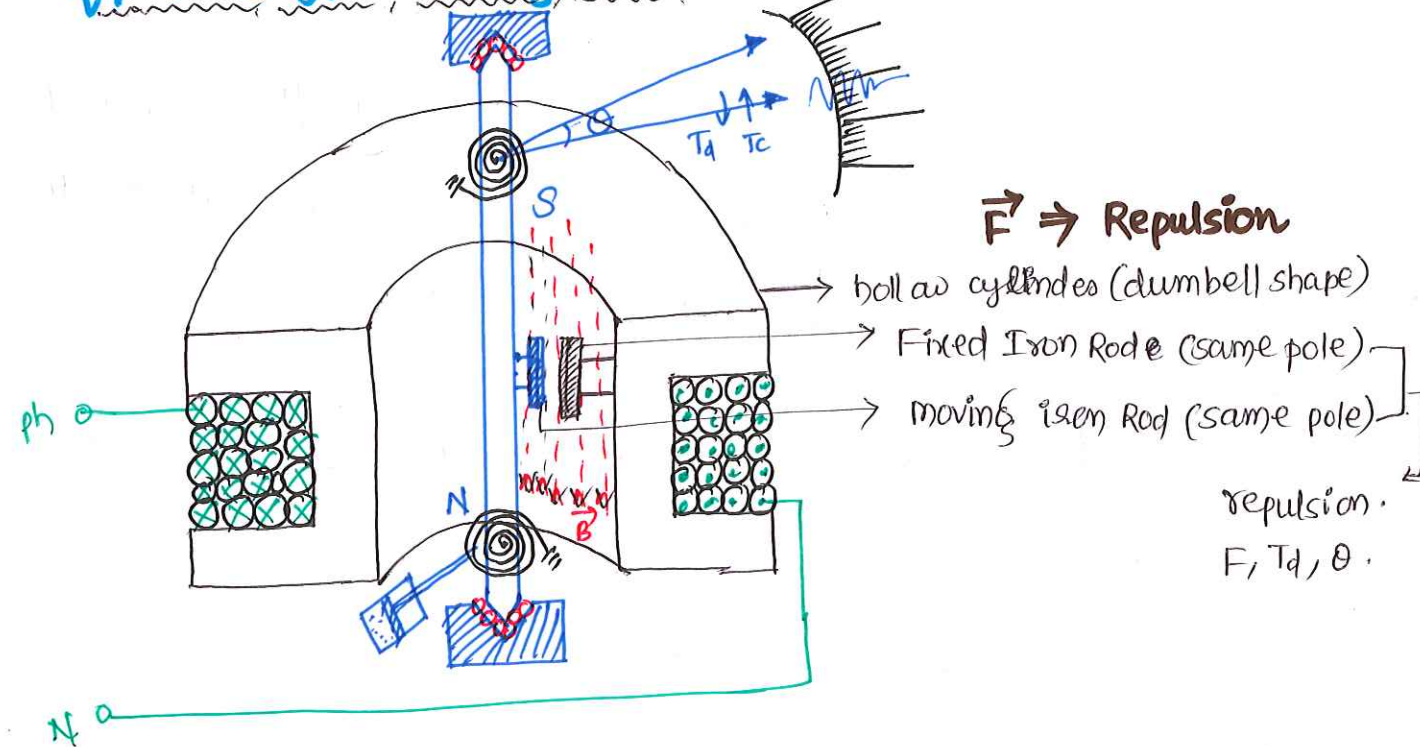 θ
Td Tc
S
F ⇒ Repulsion
hollow cylindes (dumbell shape)
Fixed Iron Rode (same pole)
moving iron Rod (same pole)
ph
N
B
repulsion.
F, Td, θ.
N